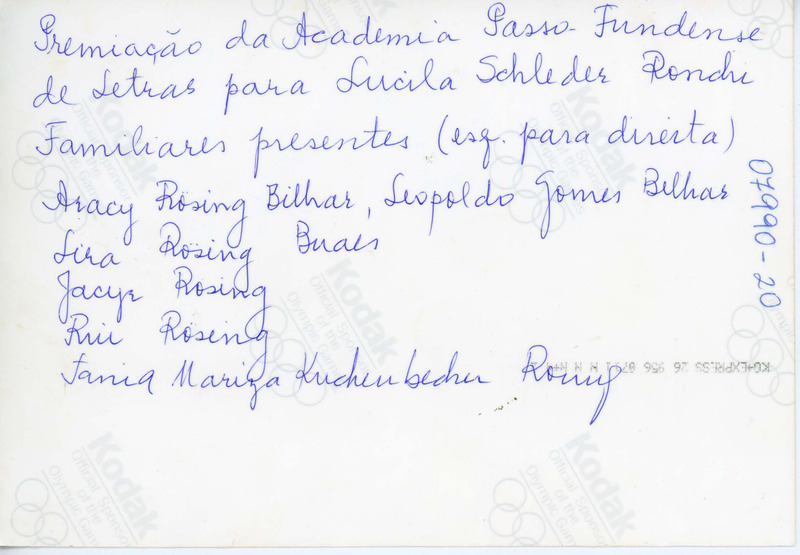 Premiação da Academia Passo-Fundense
de Letras para Lucila Schleder Ronchi
Familiares presentes (esq. para direita)
Aracy Rösing Bilhar, Leopoldo Gomes Bilhar
Lira Rösing Buaes
Jacyr Rosing
Rui Rösing
Tania Mariza Kuchenbecher Rösing
07990-20
Kodak
Official Sponsor
of the
Olympic Games